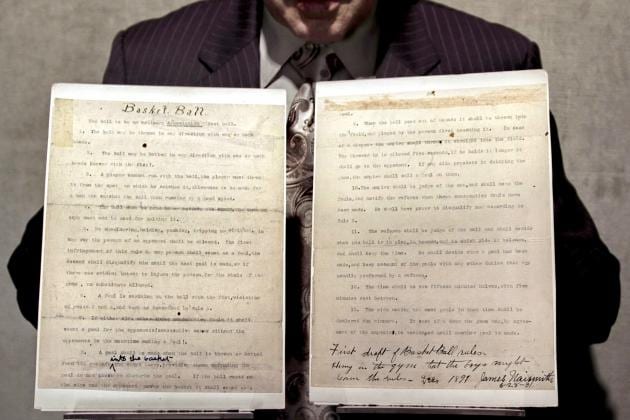 Basket Ball.
The ball to be an ordinary Association foot ball.
1. The ball may be thrown in any direction with one or both
hands.
2. The ball may be batted in any direction with one or both
hands (never with the fist).
3. A player cannot run with the ball, the player must throw it
from the spot on which he catches it, allowance to be made for
a man who catches the ball when running at a good speed.
4. The ball must be held
must not be used for holding it.
5. No shouldering, holding, pushing, tripping or striking, in
any way the person of an opponent shall be allowed. The first
infringement of this rule by any person shall count as a foul, the
second shall disqualify him until the next goal is made, or if
there was evident intent to injure the person, for the whole of the
game, no substitute allowed.
6. A foul is striking at the ball with the fist, violation
of rules 3 and 4, and such as described in rule 5.
7. If either side makes three consecutive fouls it shall
count a goal for the opponents (consecutive means without the
opponents in the meantime making a foul).
8. A goal shall be made when the ball is thrown or batted
from the grounds into the basket and stays there, providing those defending the
goal do not touch or disturb the goal. If the ball rests on
the edge and the opponent moves the basket it shall count as a
9. When the ball goes out of bounds it shall be thrown into
the field, and played by the person first touching it. In case
of a dispute the umpire shall throw it straight into the field.
The thrower in is allowed five seconds, if he holds it longer it
shall go to the opponent. If any side persists in delaying the
game, the umpire shall call a foul on them.
10. The umpire shall be judge of the men, and shall note the
fouls, and notify the referee when three consecutive fouls have
been made. He shall have power to disqualify men according to
Rule 5.
11. The referee shall be judge of the ball and shall decide
when the ball is in play, in bounds, and to which side it belongs,
and shall keep the time. He shall decide when a goal has been
made, and keep account of the goals with any other duties that are
usually performed by a referee.
12. The time shall be two fifteen minutes halves, with five
minutes rest between.
13. The side making the most goals in that time shall be
declared the winners. In case of a draw the game may, by agree-
ment of the captains, be continued until another goal is made.
First draft of Basket Ball rules.
Hung in the gym that the boys might
learn the rules - Dec 1891 James Naismith
6-28-31